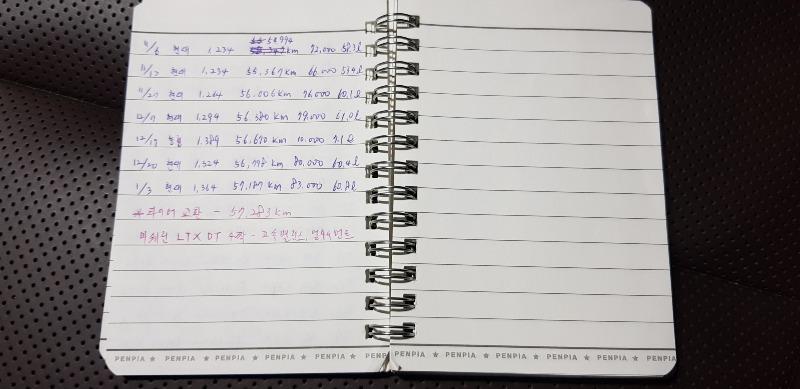 54994
11/6 현대 1,234 km 72,000 58.3ℓ
11/17 현대 1,234 55,367km 66,000 53.4ℓ
11/27 현대 1,264 56,006km 76,000 60.1ℓ
12/9 현대 1,294 56,380km 79,000 61.0ℓ
12/19 농협 1,389 56,670km 10,000 7.1ℓ
12/20 현대 1,324 56,778km 80,000 60.4ℓ
1/3 현대 1,364 57,187km 83,000 60.8ℓ
* 타이어 교환 - 57,283km
미쉐린 LTX DT 4짝 - 고속밸런스, 얼라인먼트
PENPIA ★ PENPIA ★ PENPIA ★ PENPIA ★ PENPIA ★ PENPIA ★ PENPIA
PENPIA ★ PENPIA ★ PENPIA ★ PENPIA ★ PENPIA ★ PENPIA ★ PENPIA